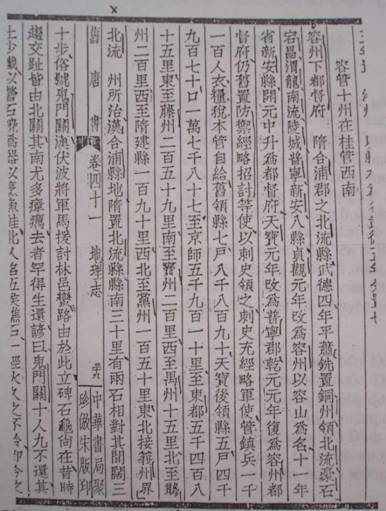 容管十州在桂管西南
容州下都督府 隋合浦郡之北流縣武德四年平蕭銑置銅州領北流豪石
宕昌渭龍南流陵城普寧新安八縣貞觀元年改為容州以容山為名十一年
省新安縣開元中升為都督府天寶元年改為普寧郡乾元元年復為容州都
督府仍舊置防禦經略招討等使以刺史領之刺史充經略軍使管鎮兵一千
一百人衣糧稅本管自給舊領縣七戶八千八百九十天寶後領縣五戶四千
九百七十口一萬七千八十七至京師五千九百一十里至東都五千四百八
十五里東至藤州二百五十九里南至竇州二百里西至禺州十五里北至龔
州二百里西至隋建縣一百九十里西北至黨州一百五十里東北接義州界
北流 州所治漢合浦縣地隋置北流縣縣南三十里有兩石相對其間闊三
舊唐書 卷四十一 地理志
中華書局聚
珍倣宋版印
十步俗號鬼門關漢伏波將軍馬援討林邑蠻路由於此立碑石龜尚在昔時
趨交趾皆由此關其南尤多瘴癘去者罕得生還諺曰鬼門關十人九不還其
土少鐵以石燒為器以烹魚鮭北人名五侯燋石一經火久之不冷即今之